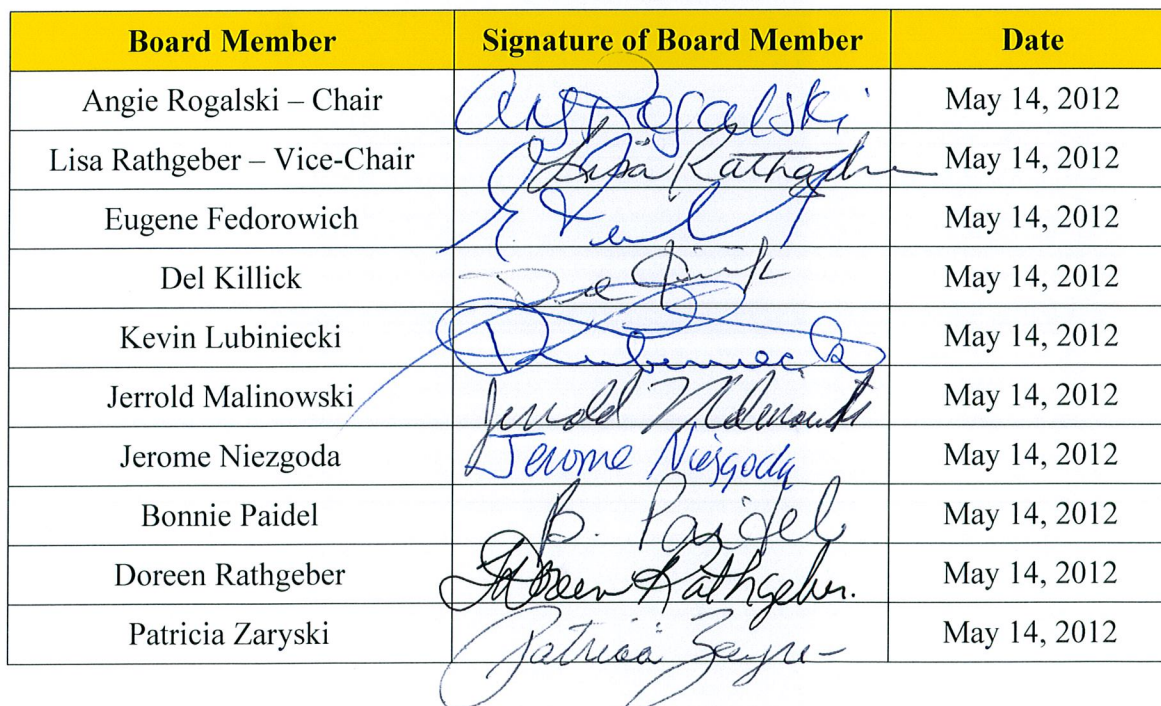 Board Member Signature of Board Member Date
Angie Rogalski – Chair Ang Rogalski May 14, 2012
Lisa Rathgeber – Vice-Chair Lisa Rathgeber May 14, 2012
Eugene Fedorowich May 14, 2012
Del Killick May 14, 2012
Kevin Lubiniecki May 14, 2012
Jerrold Malinowski Jerrold Malinowski May 14, 2012
Jerome Niezgoda Jerome Niezgoda May 14, 2012
Bonnie Paidel B. Paidel May 14, 2012
Doreen Rathgeber Doreen Rathgeber. May 14, 2012
Patricia Zaryski Patricia May 14, 2012